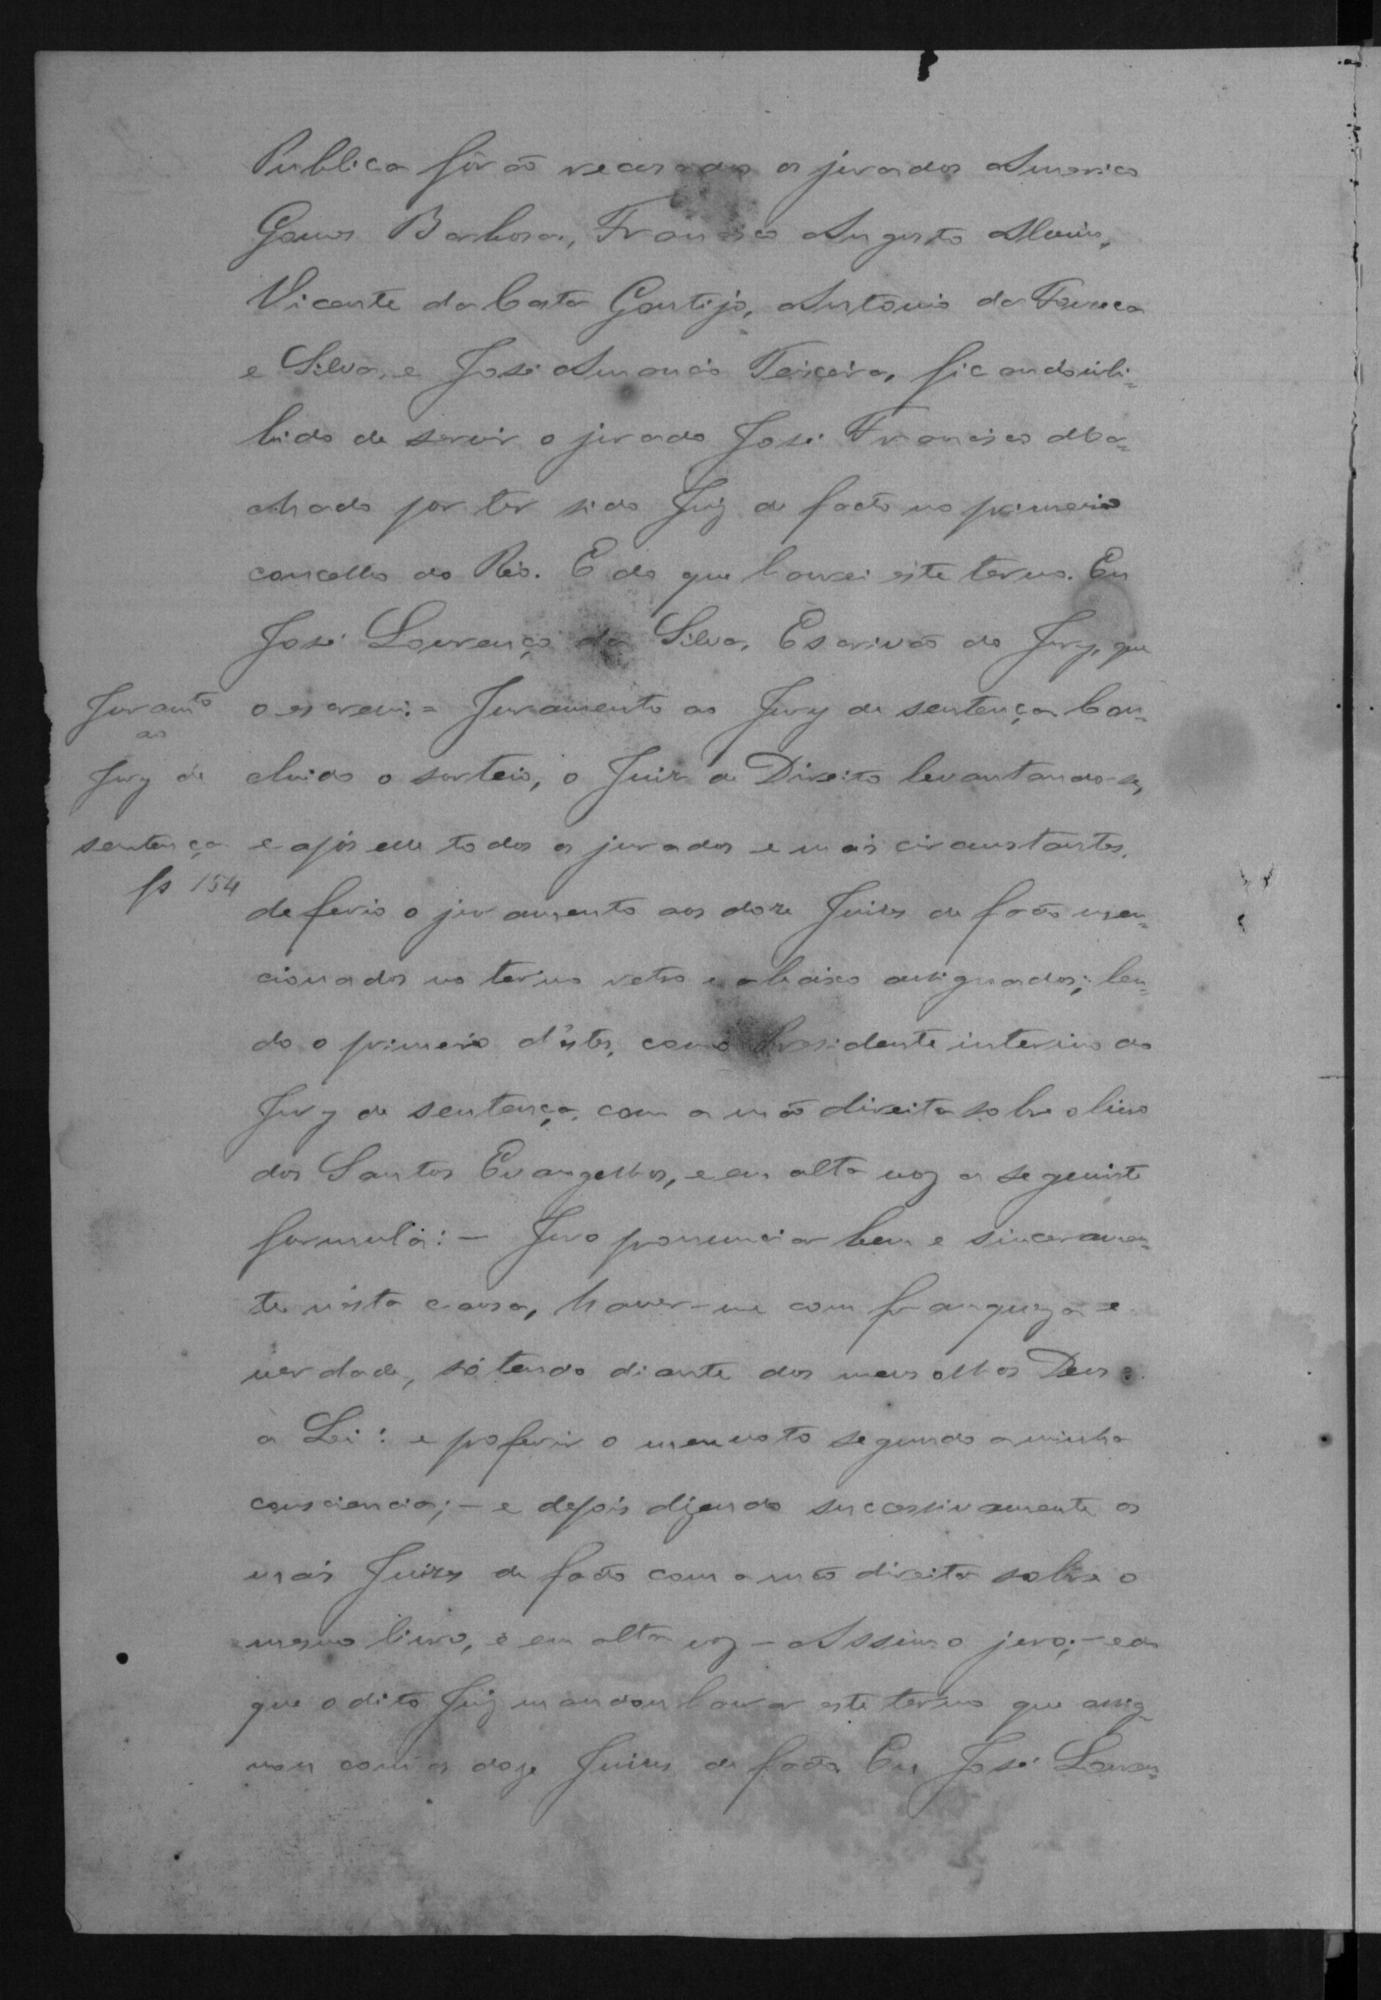 Publica fôrão recusados os jurados Americo
Gomes Barbosa, Francisco Augusto Alvim,
Vicente da Costa Gontijo, Antonio da Fonseca
e Silva, e José Amancio Teixeira, ficando inhi-
bido de servir o jurado José Francisco Ma-
chado por ter sido Juiz de facto no primeiro
concelho do Réo. E do que lavrei este termo. Eu
José Lourenço da Silva, Escrivão do Jury, que
o escrevi = Juramento ao Jury de sentença Con-
cluido o sorteio, o Juiz de Direito levantando-se,
e após elle todos os jurados e mais circunstantes,
deferio o juramento aos doze Juizes de facto men-
cionados no termo retro e abaixo assignados; len-
do o primeiro d'estes, como Presidente interino do
Jury de sentença, com a mão direita sobre o livro
dos Santos Evangelhos, e em alta voz a seguinte
formula: - Juro pronunciar bem e sinceramen-
te nésta causa, haver-me com franqueza e
verdade, só tendo diante dos meus olhos Deus e
a Lei: e proferir o meu voto segundo a minha
consciencia; - e depois dizendo successivamente os
mais Juizes de facto com a mão direita sobre o
mesmo livro, e em alta voz - Assim o juro; - e do
que o dito Juiz mandou lavrar este termo que assig-
nou com os doze Juizes de facto. Eu José Louren-
Juramto
ao
Jury de
sentença
fs 154